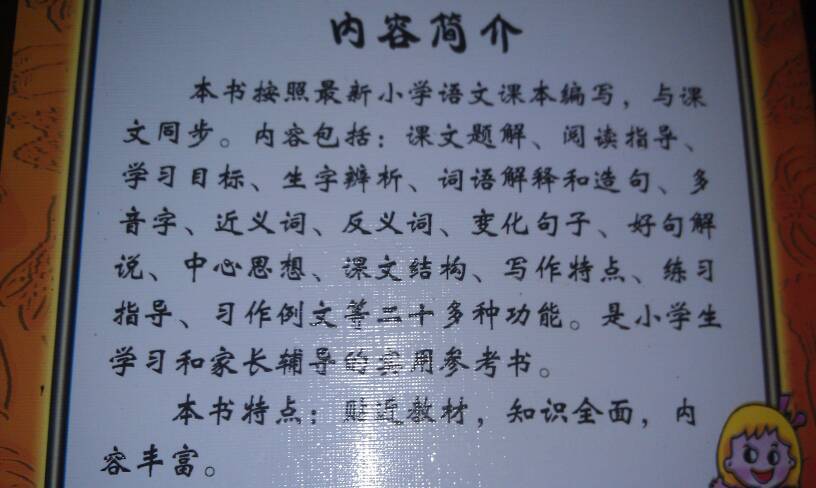 内容简介
本书按照最新小学语文课本编写，与课
文同步。内容包括：课文题解、阅读指导、
学习目标、生字辨析、词语解释和造句、多
音字、近义词、反义词、变化句子、好句解
说、中心思想、课文结构、写作特点、练习
指导、习作例文等二十多种功能。是小学生
学习和家长辅导的实用参考书。
本书特点：贴近教材，知识全面，内
容丰富。